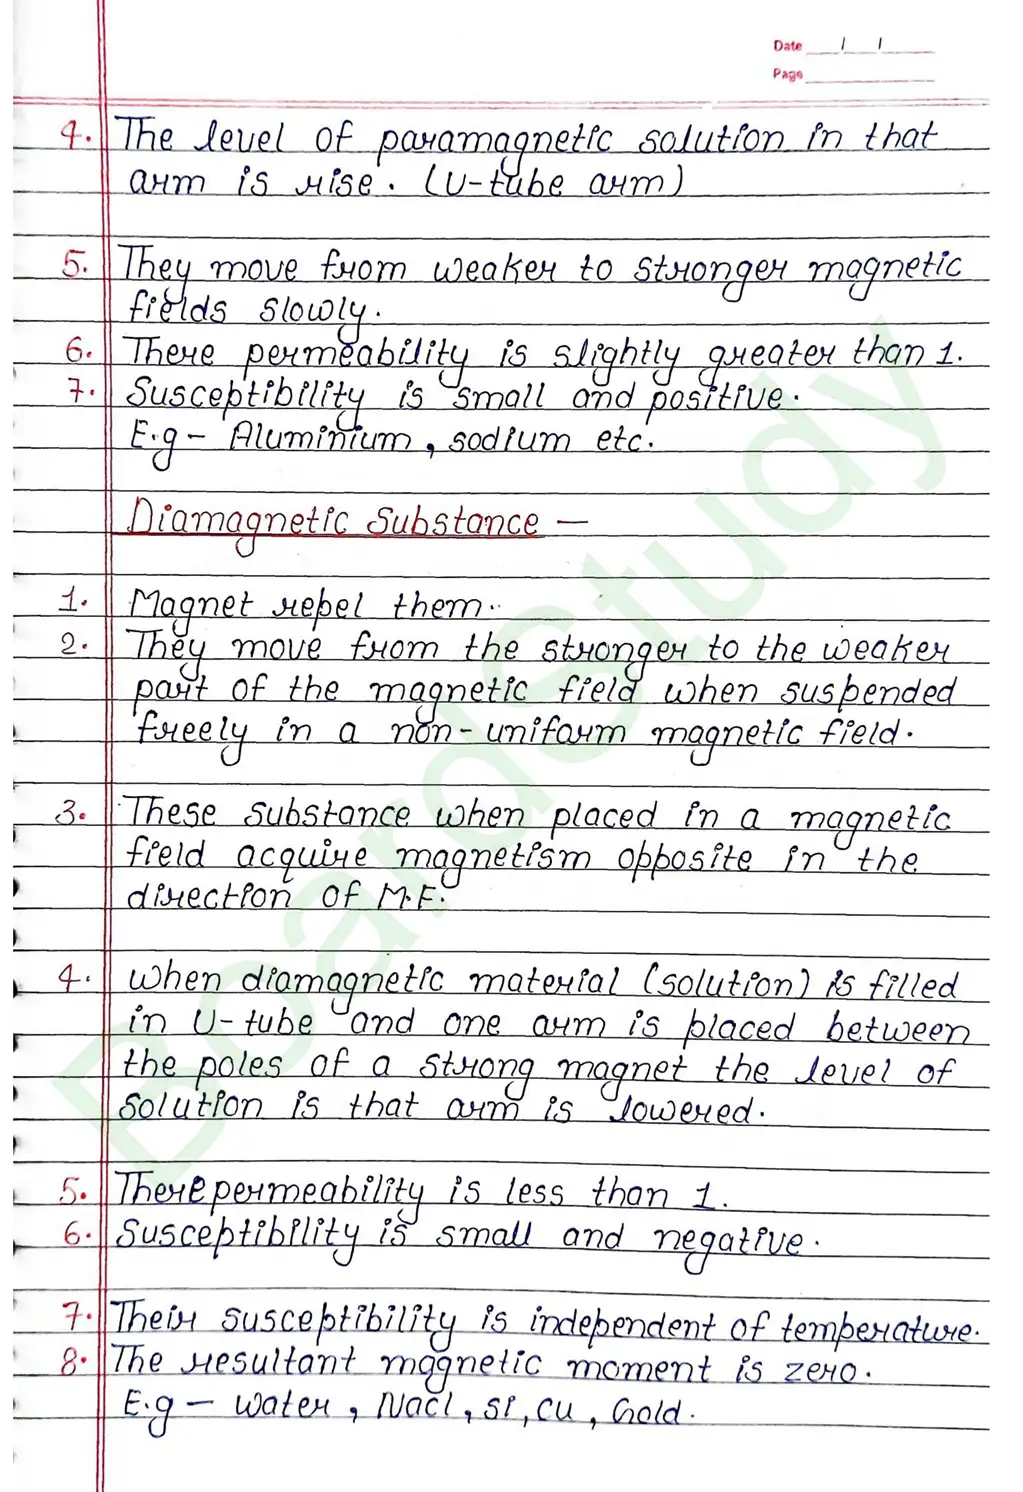 Date / /
Page
4. The level of paramagnetic solution in that
arm is rise. (U-tube arm)
5. They move from weaker to stronger magnetic
fields slowly.
6. There permeability is slightly greater than 1.
7. Susceptibility is small and positive.
E.g - Aluminium, sodium etc.
Diamagnetic Substance —
1. Magnet repel them.
2. They move from the stronger to the weaker
part of the magnetic field when suspended
freely in a non-uniform magnetic field.
3. These substance when placed in a magnetic
field acquire magnetism opposite in the
direction of M.F.
4. when diamagnetic material (solution) is filled
in U-tube and one arm is placed between
the poles of a strong magnet the level of
solution is that arm is lowered.
5. There permeability is less than 1.
6. Susceptibility is small and negative.
7. Their susceptibility is independent of temperature.
8. The resultant magnetic moment is zero.
E.g — water, Nacl, si, cu, Gold.
BoardStudy